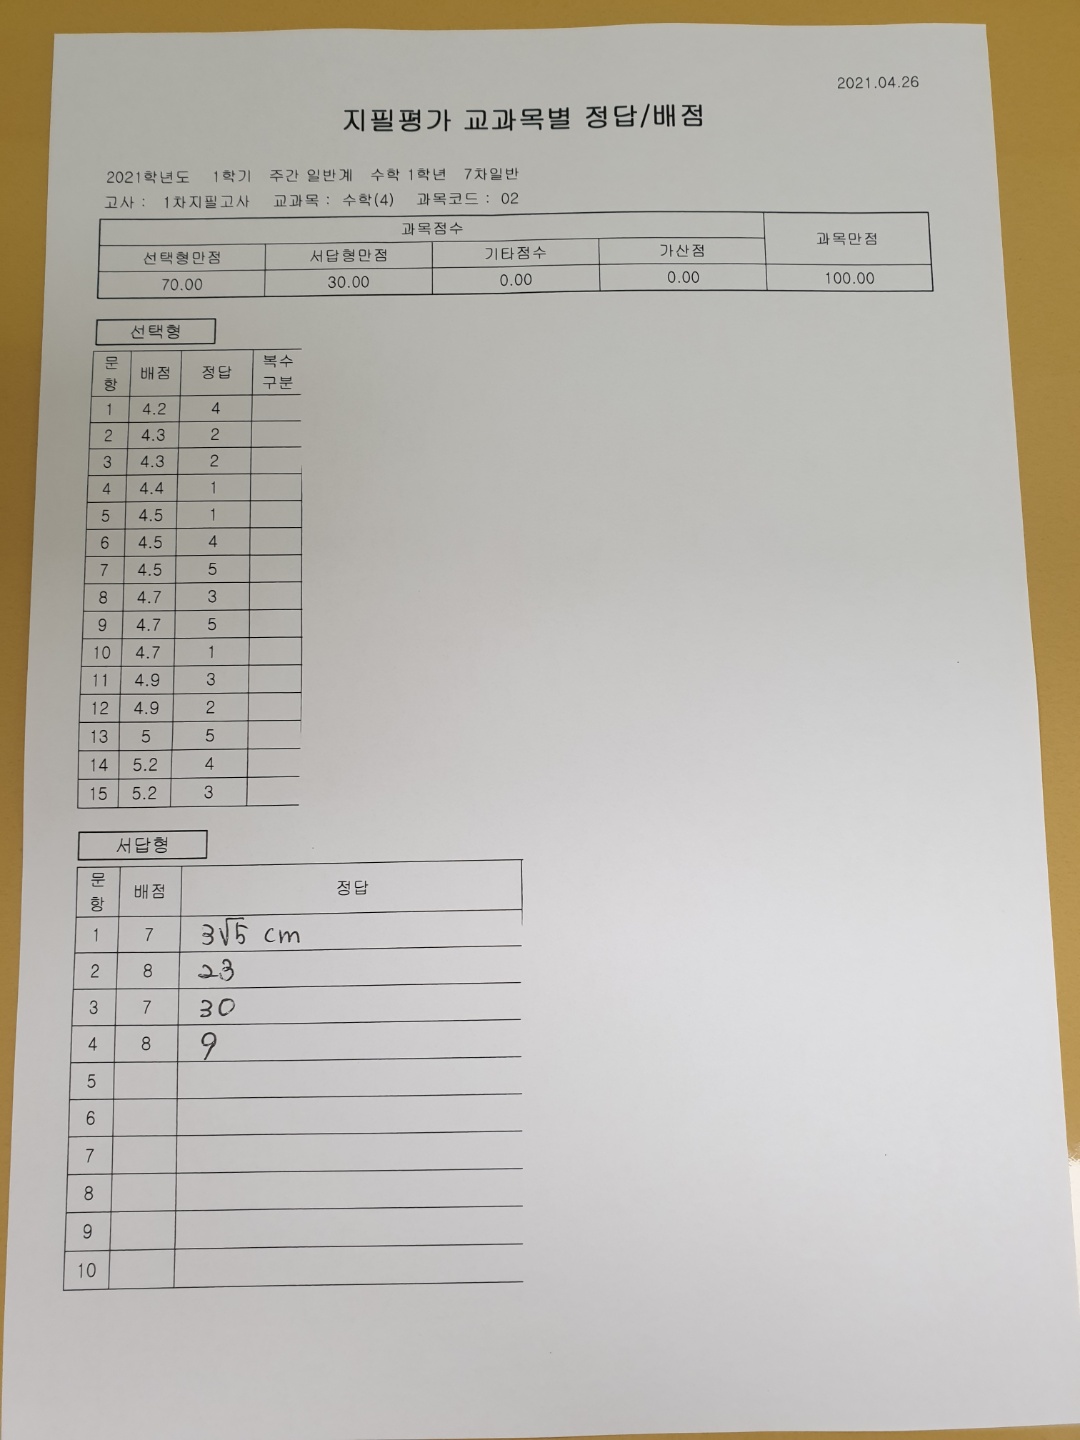 2021.04.26
지필평가 교과목별 정답/배점
2021학년도 1학기 주간 일반계 수학 1학년 7차일반
고사 : 1차지필고사 교과목 : 수학(4) 과목코드 : 02
과목점수 과목만점
선택형만점 서답형만점 기타점수 가산점
70.00 30.00 0.00 0.00 100.00
선택형
문항 배점 정답 복수구분
1 4.2 4
2 4.3 2
3 4.3 2
4 4.4 1
5 4.5 1
6 4.5 4
7 4.5 5
8 4.7 3
9 4.7 5
10 4.7 1
11 4.9 3
12 4.9 2
13 5 5
14 5.2 4
15 5.2 3
서답형
문항 배점 정답
1 7 3√5 cm
2 8 23
3 7 30
4 8 9
5
6
7
8
9
10